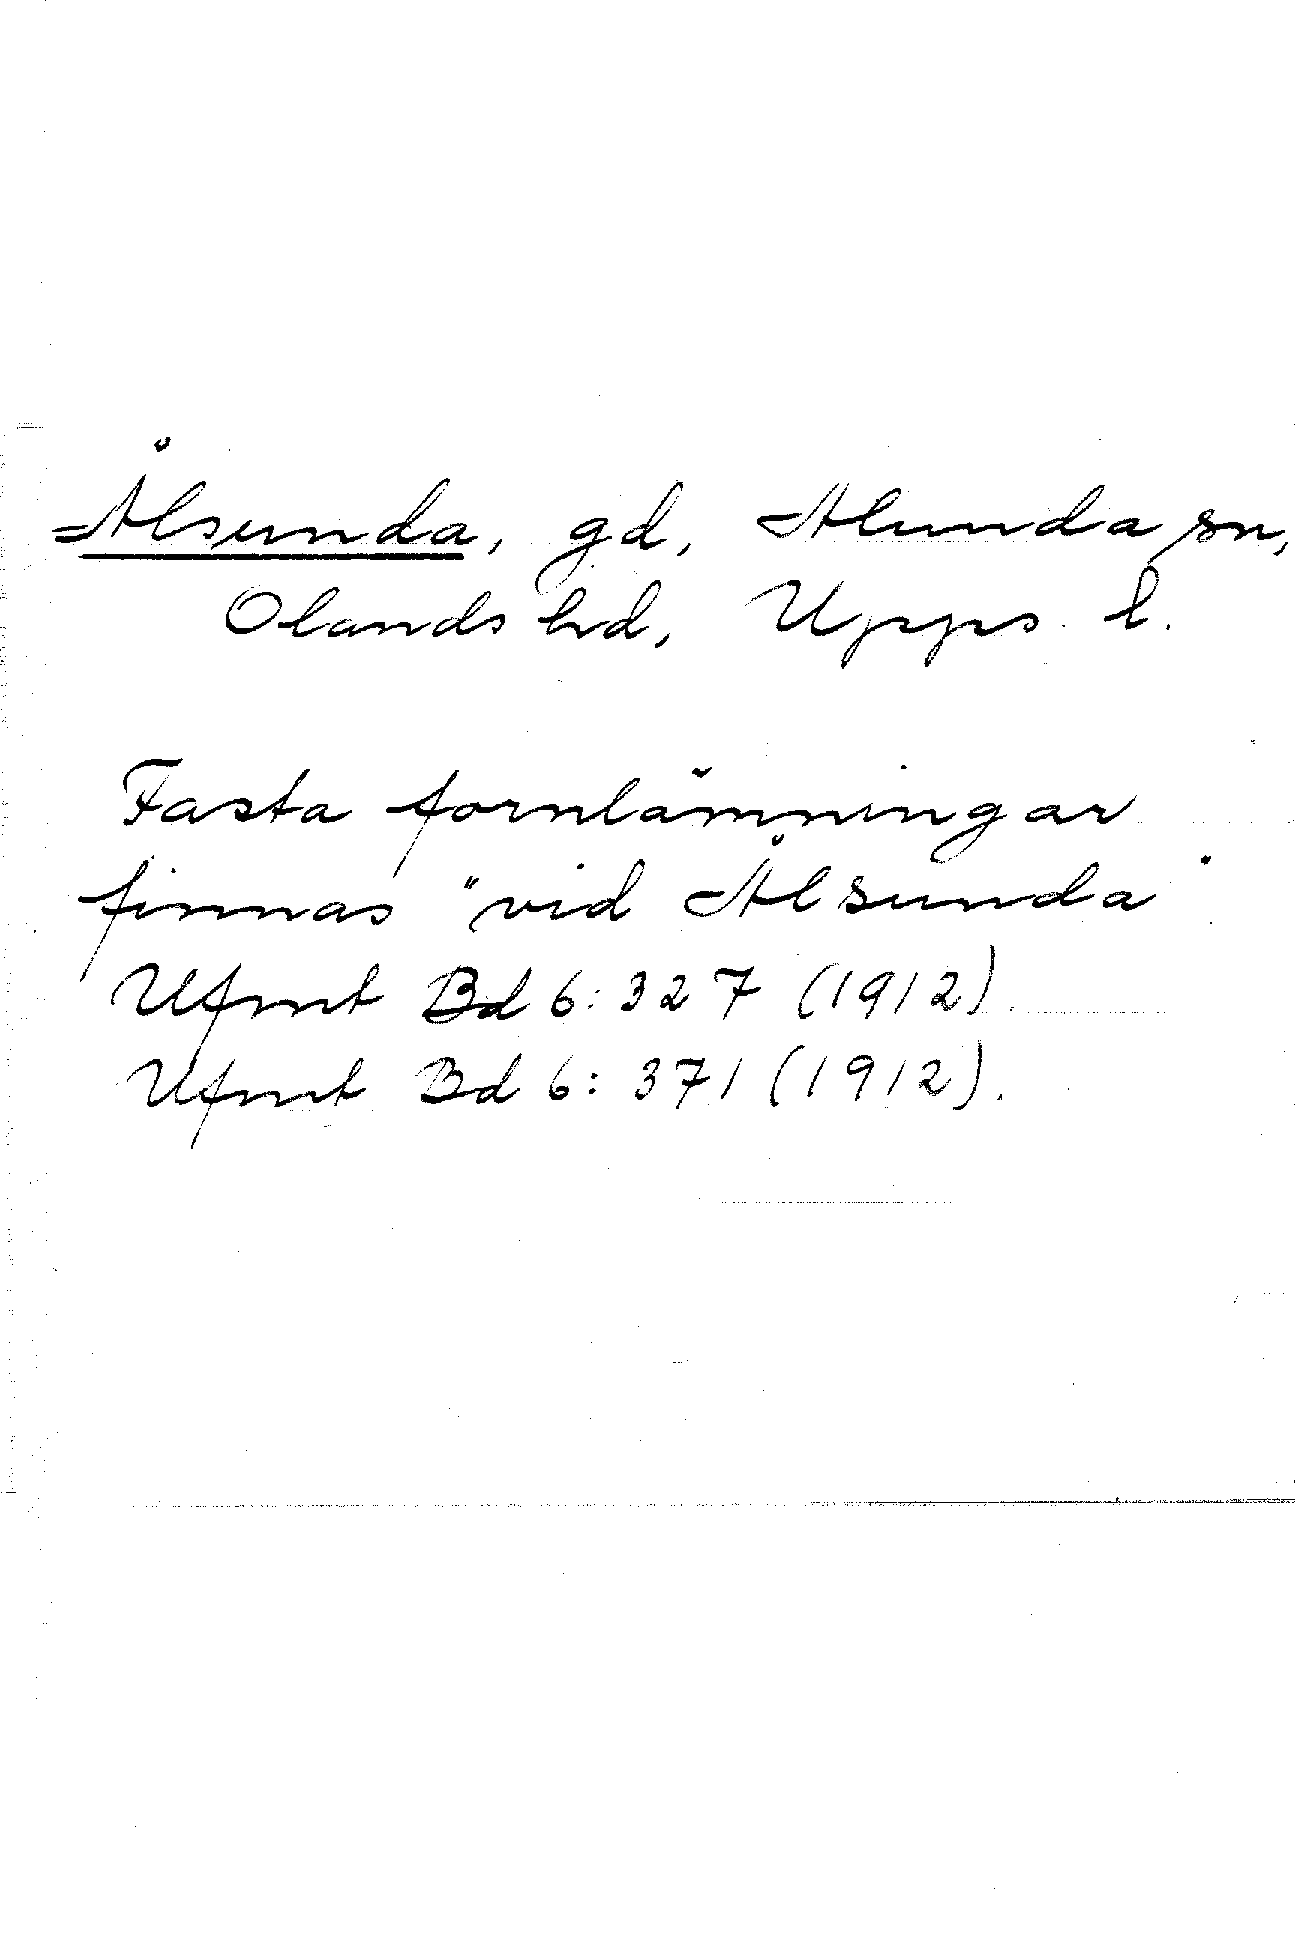 Ålsunda, gd, Alunda sn,
Olands hd, Upps. l.
Fasta fornlämningar
finnas "vid Ålsunda"
Ufmt Bd 6: 327 (1912).
Ufmt Bd 6: 371 (1912).